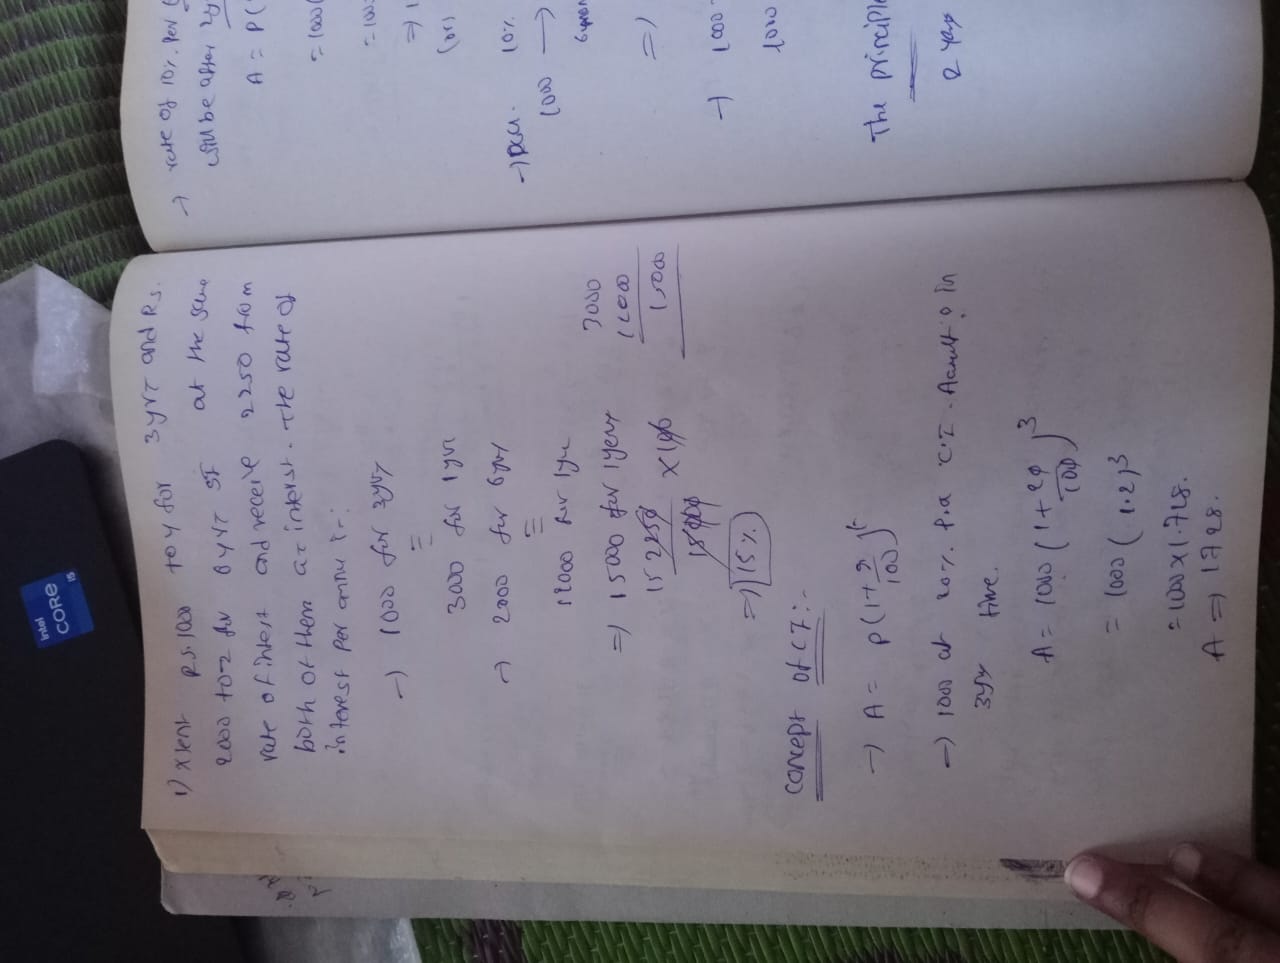 1) x lent Rs. 1000 to y for 3yrs and Rs.
2000 to z for 6 yrs at the same
rate of intrest and receive 2250 from
both of them as intrest. The rate of
interest per annu is:
→ 1000 for 3yrs
=
3000 for 1yr
→ 2000 for 6yrs
=
12000 for 1yr
3000
12000
15000
⇒ 15000 for 1year
15 2250 × 100
15000
⇒ 15%
concept of CI:-
→ A = P(1+ r/100)t
→ 1000 at 20% p.a C.I. Amult? in
3yrs time.
A = 1000 (1+ 20/100)3
= 1000 (1.2)3
= 1000 × 1.728.
A ⇒ 1728.
→ rate of 10%. per
will be after 2y
A = P(
= 1000(
= 100
⇒ 1
(or)
→ 10%
1000 →
⇒
→ 1000
1000
The principle
2 years
intel
CORE
i5